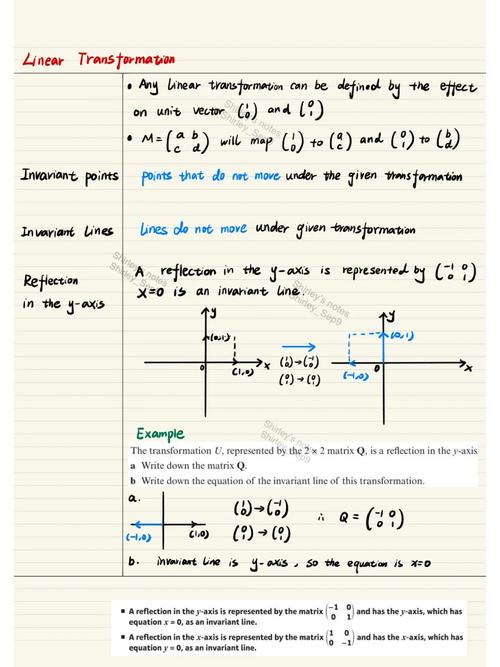 Linear Transformation
• Any linear transformation can be defined by the effect
on unit vector (1 0) and (0 1)
• M = (a b c d) will map (1 0) to (a c) and (0 1) to (b d)
Invariant points points that do not move under the given transformation
Invariant Lines lines do not move under given transformation
Reflection
in the y-axis
A reflection in the y-axis is represented by (-1 0 0 1)
x=0 is an invariant line.
y
(0,1)
0
(1,0)
x
(1 0) → (-1 0)
(0 1) → (0 1)
y
(0,1)
(-1,0)
0
x
Shirley's notes
Shirley_Sep9
Shirley's notes
Shirley_Sep9
Shirley's notes
Shirley_Sep9
Shirley's notes
Shirley_Sep9
Example
The transformation U, represented by the 2 × 2 matrix Q, is a reflection in the y-axis
a Write down the matrix Q.
b Write down the equation of the invariant line of this transformation.
a.
(-1,0)
(1,0)
(1 0) → (-1 0)
(0 1) → (0 1)
∴ Q = (-1 0 0 1)
b. invariant line is y-axis, so the equation is x=0
▪ A reflection in the y-axis is represented by the matrix (-1 0 0 1) and has the y-axis, which has
equation x = 0, as an invariant line.
▪ A reflection in the x-axis is represented by the matrix (1 0 0 -1) and has the x-axis, which has
equation y = 0, as an invariant line.